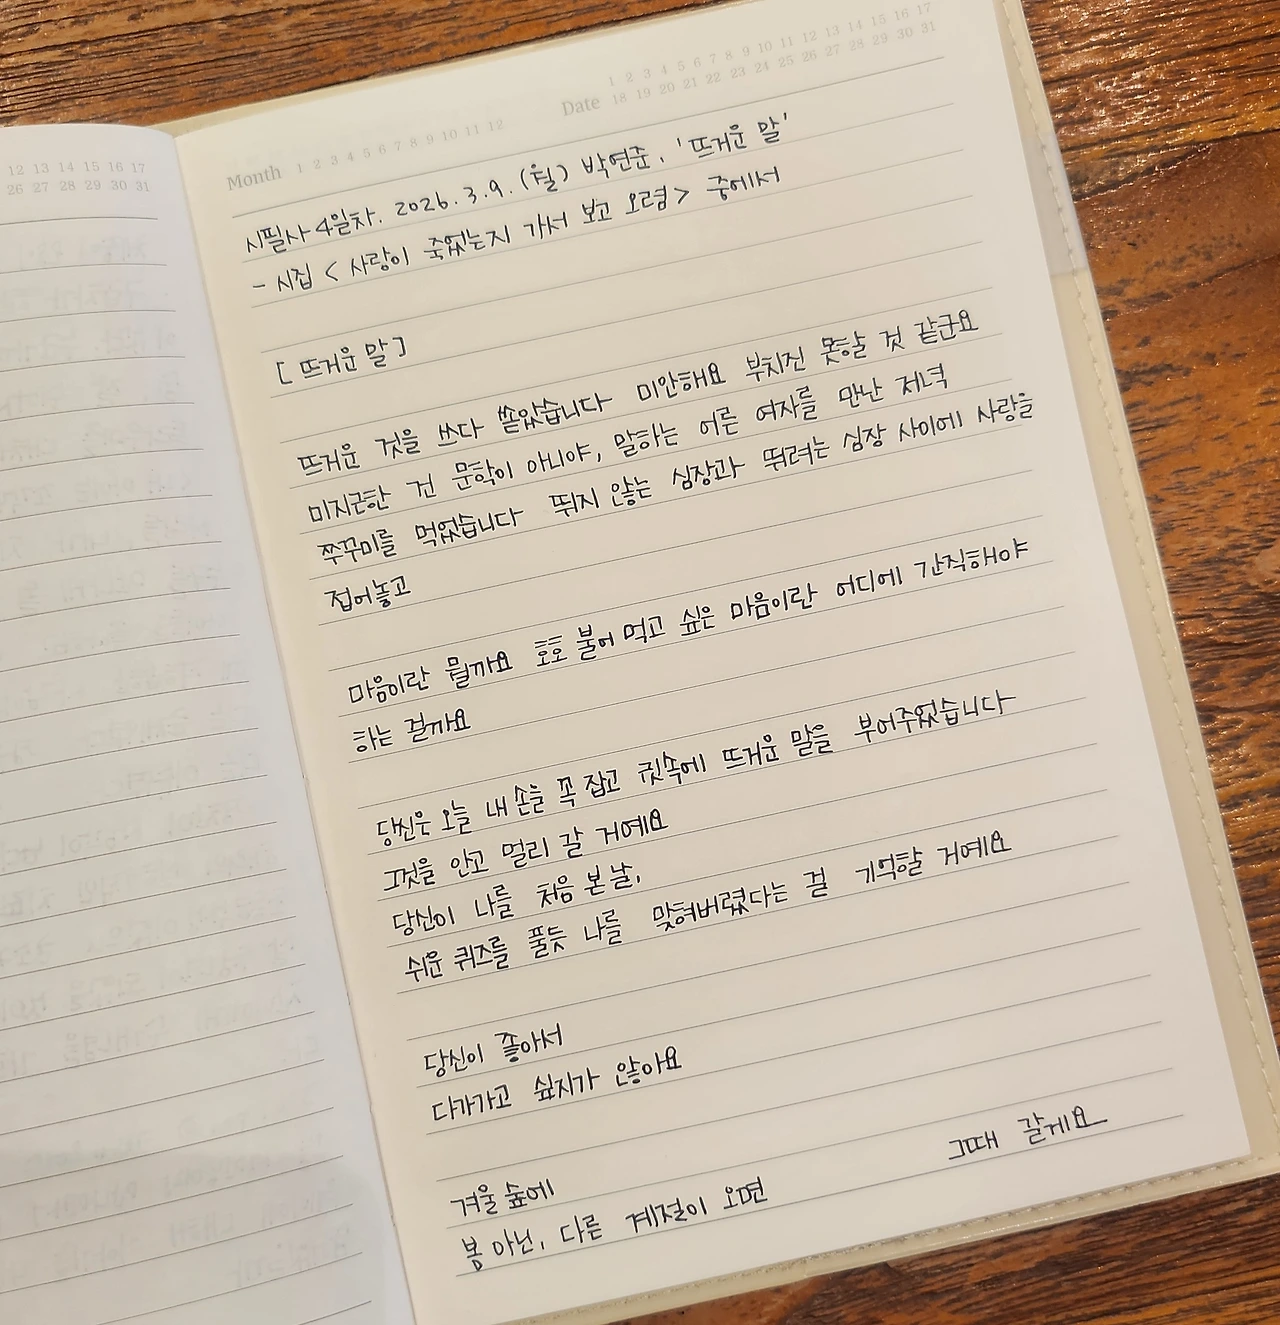 12 13 14 15 16 17
26 27 28 29 30 31
Month 1 2 3 4 5 6 7 8 9 10 11 12
Date 1 2 3 4 5 6 7 8 9 10 11 12 13 14 15 16 17
18 19 20 21 22 23 24 25 26 27 28 29 30 31
시필사 4일차. 2026.3.9.(월) 박연준. '뜨거운 말'
- 시집 < 사랑이 죽었는지 가서 보고 오렴> 중에서
[ 뜨거운 말 ]
뜨거운 것을 쓰다 쏟았습니다 미안해요 부치진 못할 것 같군요
미지근한 건 문학이 아니야, 말하는 어른 여자를 만난 저녁
쭈꾸미를 먹었습니다 뛰지 않는 심장과 뛰려는 심장 사이에 사랑을
접어놓고
마음이란 뭘까요 호호 불어 먹고 싶은 마음이란 어디에 간직해야
하는 걸까요
당신은 오늘 내 손을 꼭 잡고 귓속에 뜨거운 말을 부어주었습니다
그것을 안고 멀리 갈 거예요
당신이 나를 처음 본 날,
쉬운 퀴즈를 풀듯 나를 맞혀버렸다는 걸 기억할 거예요
당신이 좋아서
다가가고 싶지가 않아요
겨울 숲에
봄 아닌, 다른 계절이 오면
그때 갈게요